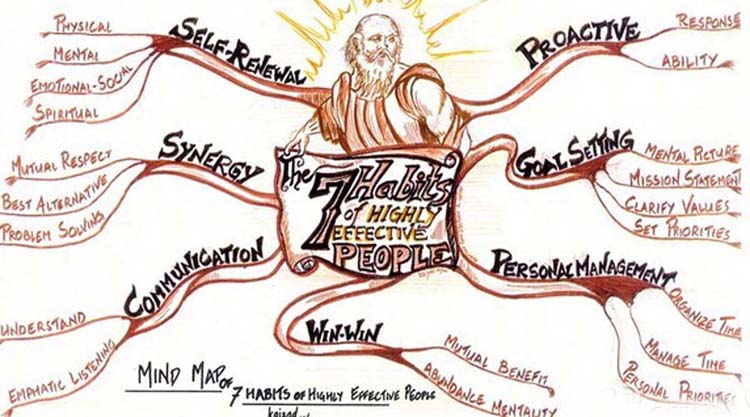 The
7 Habits
of HIGHLY
EFFECTIVE
PEOPLE
PROACTIVE
RESPONSE
ABILITY
GOAL SETTING
MENTAL PICTURE
MISSION STATEMENT
CLARIFY VALUES
SET PRIORITIES
PERSONAL MANAGEMENT
ORGANIZE TIME
MANAGE TIME
PERSONAL PRIORITIES
WIN-WIN
MUTUAL BENEFIT
ABUNDANCE MENTALITY
COMMUNICATION
UNDERSTAND
EMPHATIC LISTENING
SYNERGY
MUTUAL RESPECT
BEST ALTERNATIVE
PROBLEM SOLVING
SELF-RENEWAL
PHYSICAL
MENTAL
EMOTIONAL-SOCIAL
SPIRITUAL
MIND MAP OF
7 HABITS OF HIGHLY EFFECTIVE PEOPLE